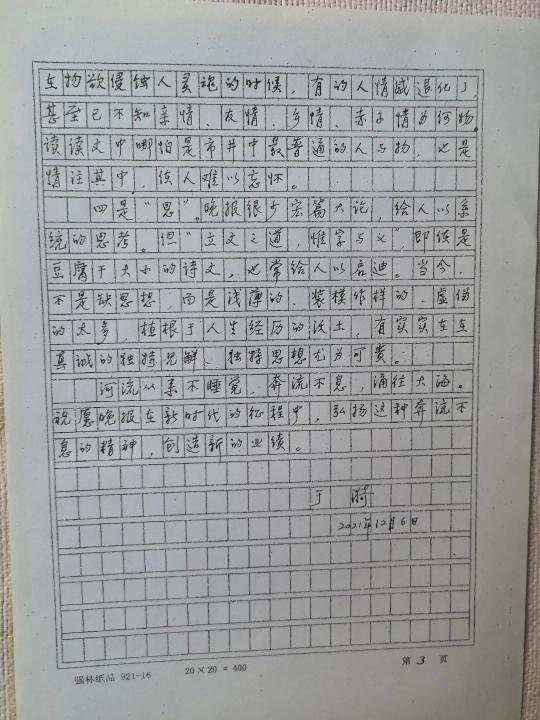 在物欲侵蚀人灵魂的时候，有的人情感退化了，
甚至已不知亲情、友情、乡情、赤子情为何物。
读读文中哪怕是市井中最普通的人与物，也是
情注其中，使人难以忘怀。
四是“思”。晚报很少宏篇大论，给人以系
统的思考。但“立文之道，惟字与义”，即使是
豆腐干大小的诗文，也常给人以启迪。当今，
不是缺思想，而是浅薄的、装模作样的、虚伪
的太多，植根于人生经历的沃土，有实实在在
真诚的独特见解、独特思想尤为可贵。
河流从来不睡觉，奔流不息，涌往大海。
祝愿晚报在新时代的征程中，弘扬这种奔流不
息的精神，创造新的业绩。
于漪
2021年12月6日
强林纸品 921-16 20×20=400 第 3 页